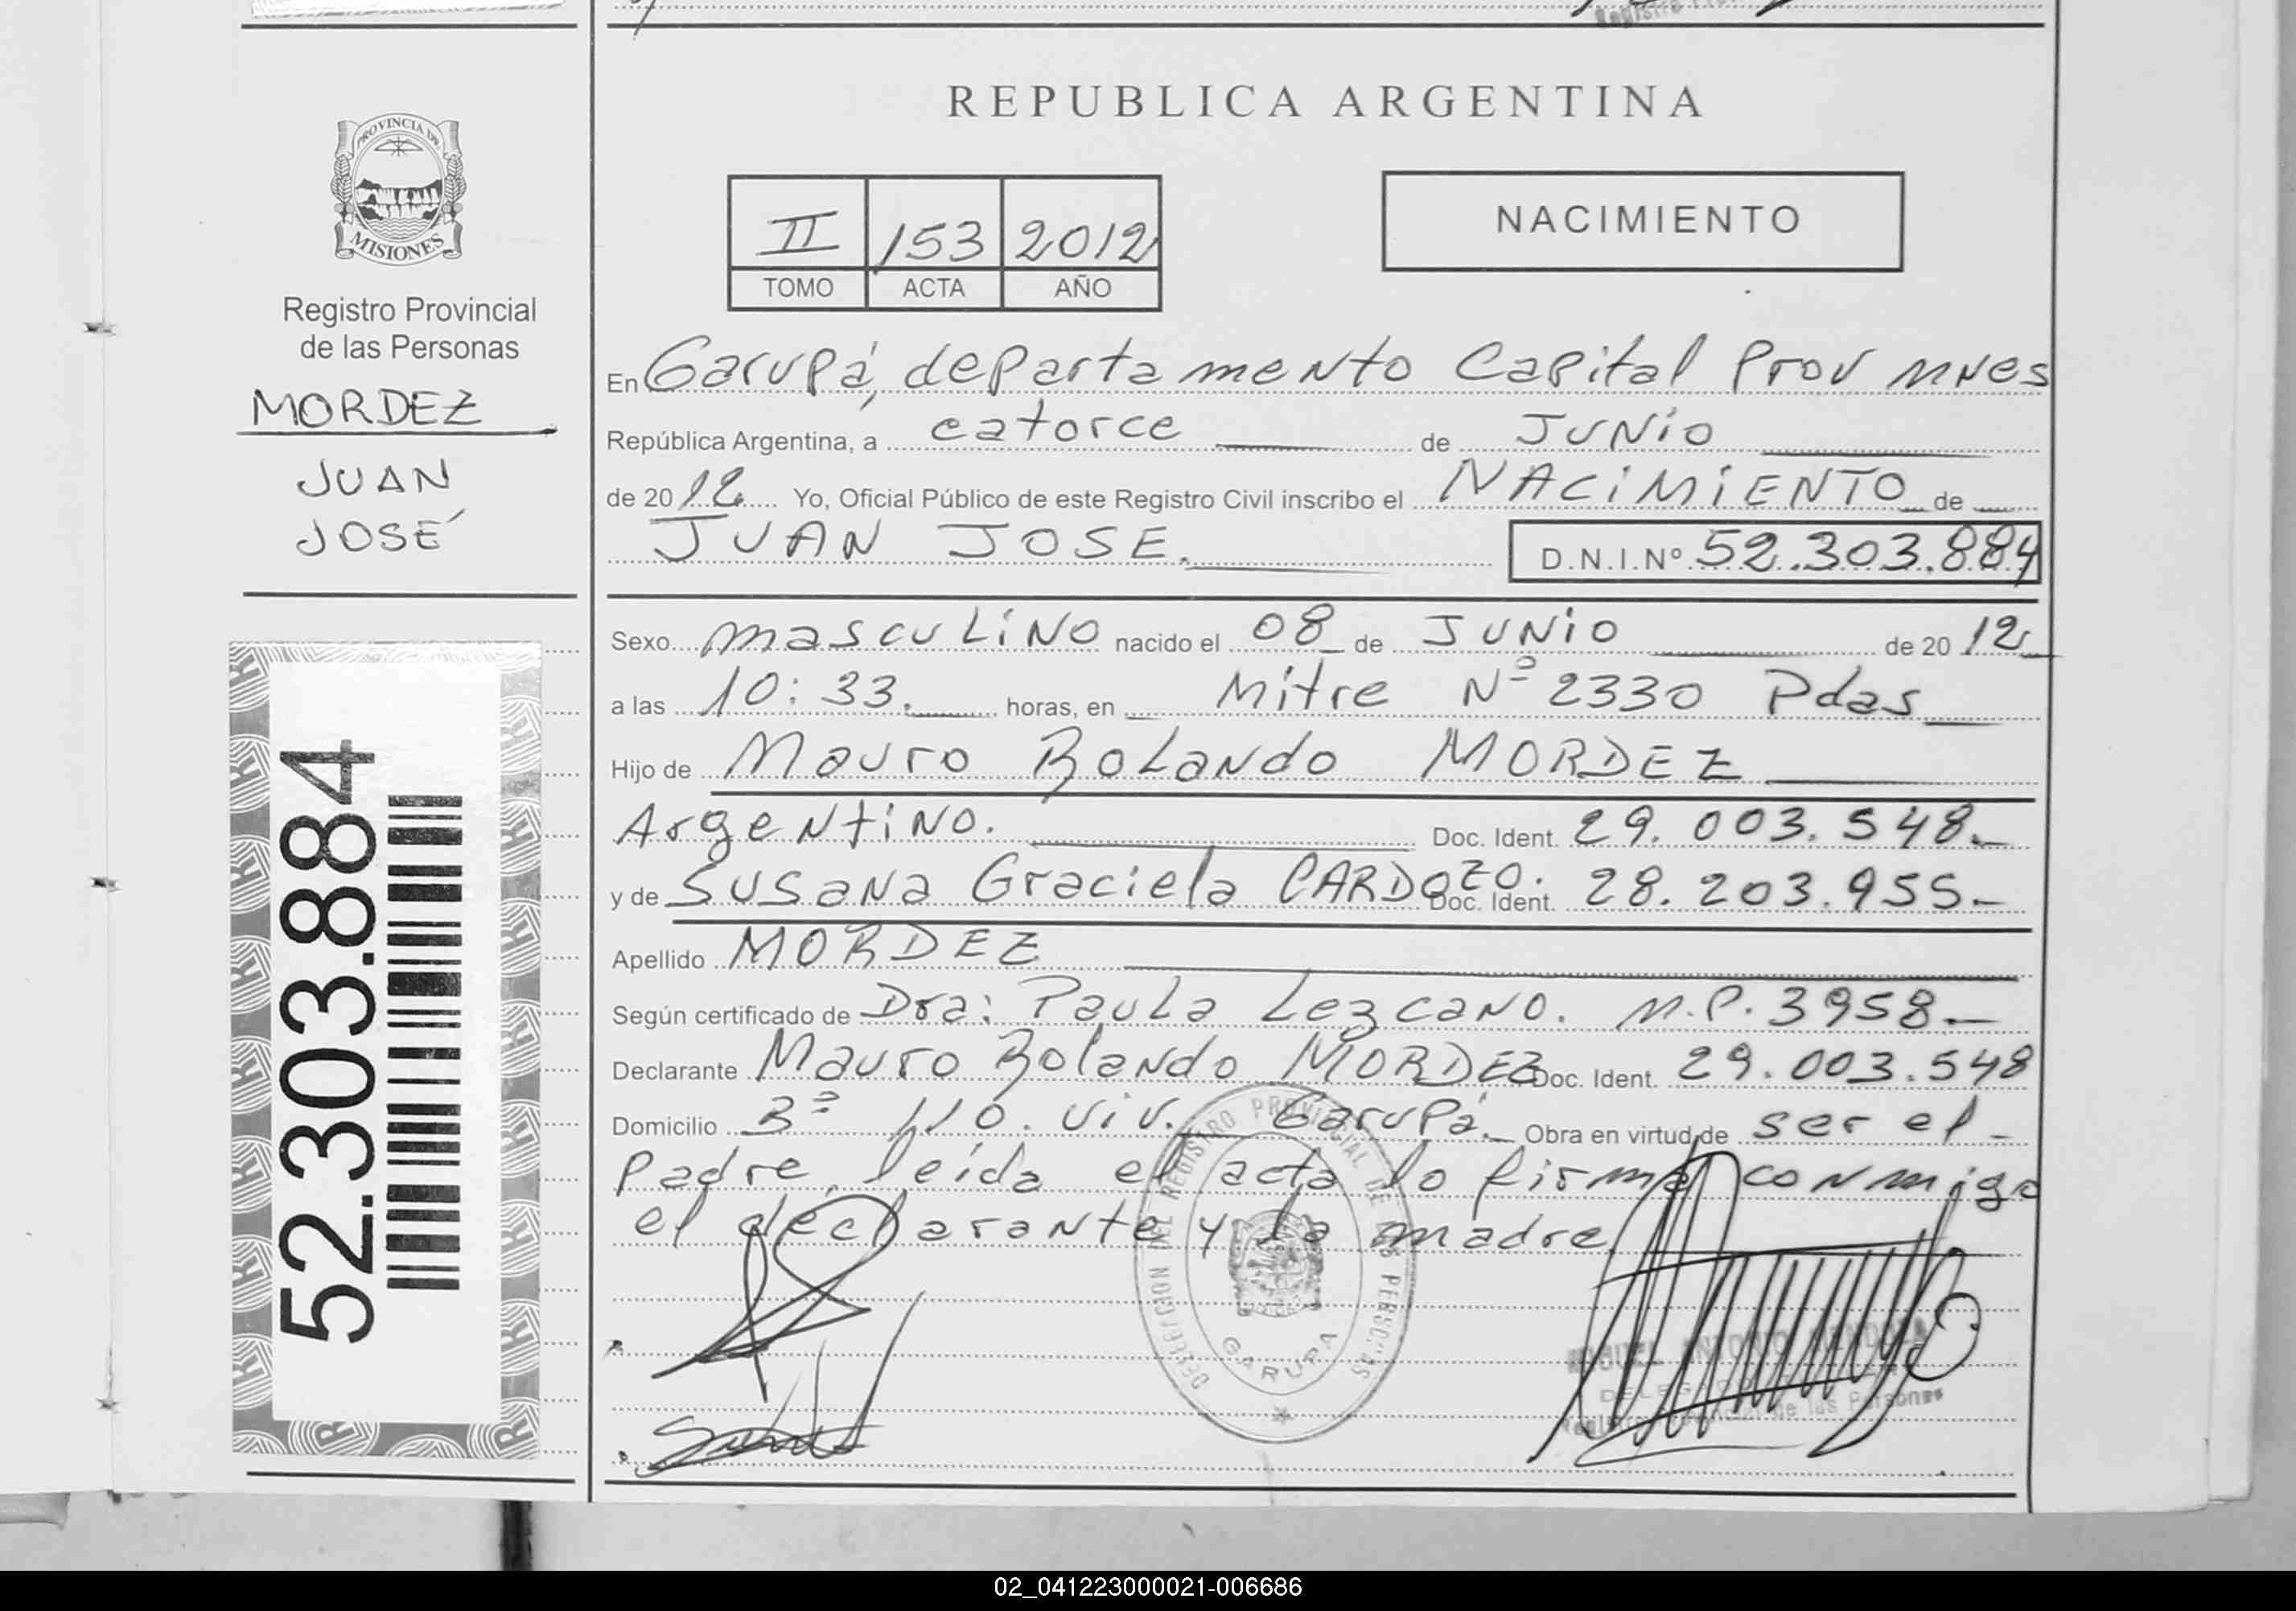 REPUBLICA ARGENTINA
PROVINCIA DE
MISIONES
Registro Provincial
de las Personas
MORDEZ
JUAN
JOSÉ
52.303.884
II 153 2012
TOMO ACTA AÑO
NACIMIENTO
En Garupá, departamento Capital Prov Mnes
República Argentina, a catorce de JUNio
de 2012 Yo, Oficial Público de este Registro Civil inscribo el NACiMiENTO de
JUAN JOSE. D.N.I.Nº 52.303.884
Sexo masculiNo nacido el 08 de JUNio de 20 12
a las 10:33. horas, en Mitre Nº 2330 Pdas
Hijo de Mauro RoLaNdo MORDEZ
ArgeNtiNo. Doc. Ident. 29.003.548.-
y de SusaNa Graciela CARDOZO. Doc. Ident. 28.203.955.-
Apellido MORDEZ
Según certificado de Dra: PauLa LezcaNo. M.P. 3958.-
Declarante Mauro RolaNdo MORDEZ Doc. Ident. 29.003.548
Domicilio Bº 110. viv. Garupá.- Obra en virtud de ser el -
Padre, leída el acta lo firma coNmigo
el declaraNte y la madre
DELEGACION DEL REGISTRO PROVINCIAL DE LAS PERSONAS
GARUPA
MIGUEL ANTONIO MENDOZA
DELEGADO
Registro Provincial de las Personas
02_041223000021-006686